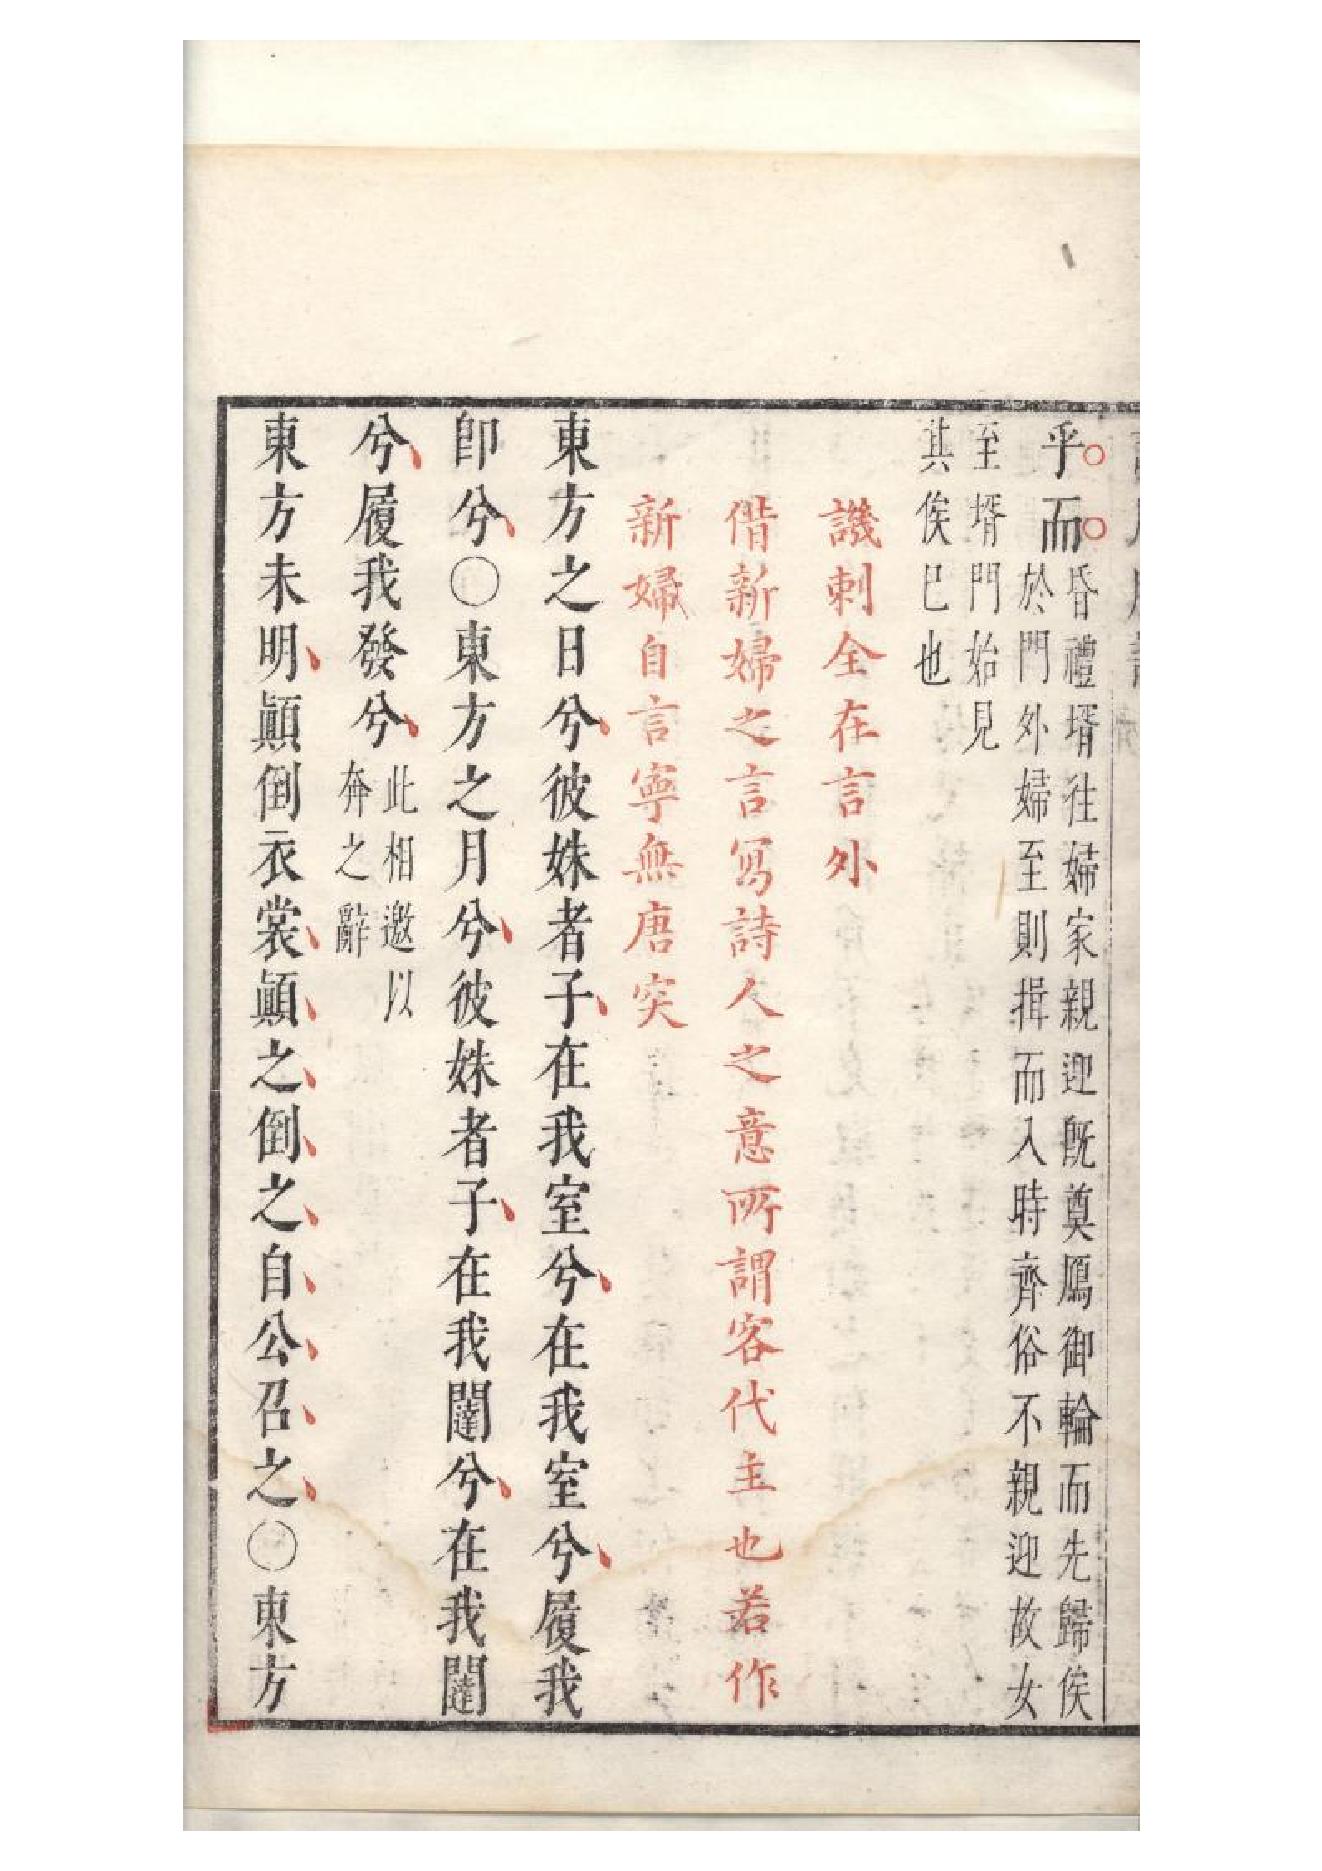 乎而昏禮壻往婦家親迎旣奠鴈御輪而先歸俟
於門外婦至則揖而入時齊俗不親迎故女
至壻門始見
其俟已也
譏刺全在言外
偕新婦之言寫詩人之意所謂客代主也若作
新婦自言寧無唐突
東方之日兮彼姝者子在我室兮在我室兮履我
卽兮○東方之月兮彼姝者子在我闥兮在我闥
兮履我發兮此相邀以
奔之辭
東方未明顚倒衣裳顚之倒之自公召之○東方